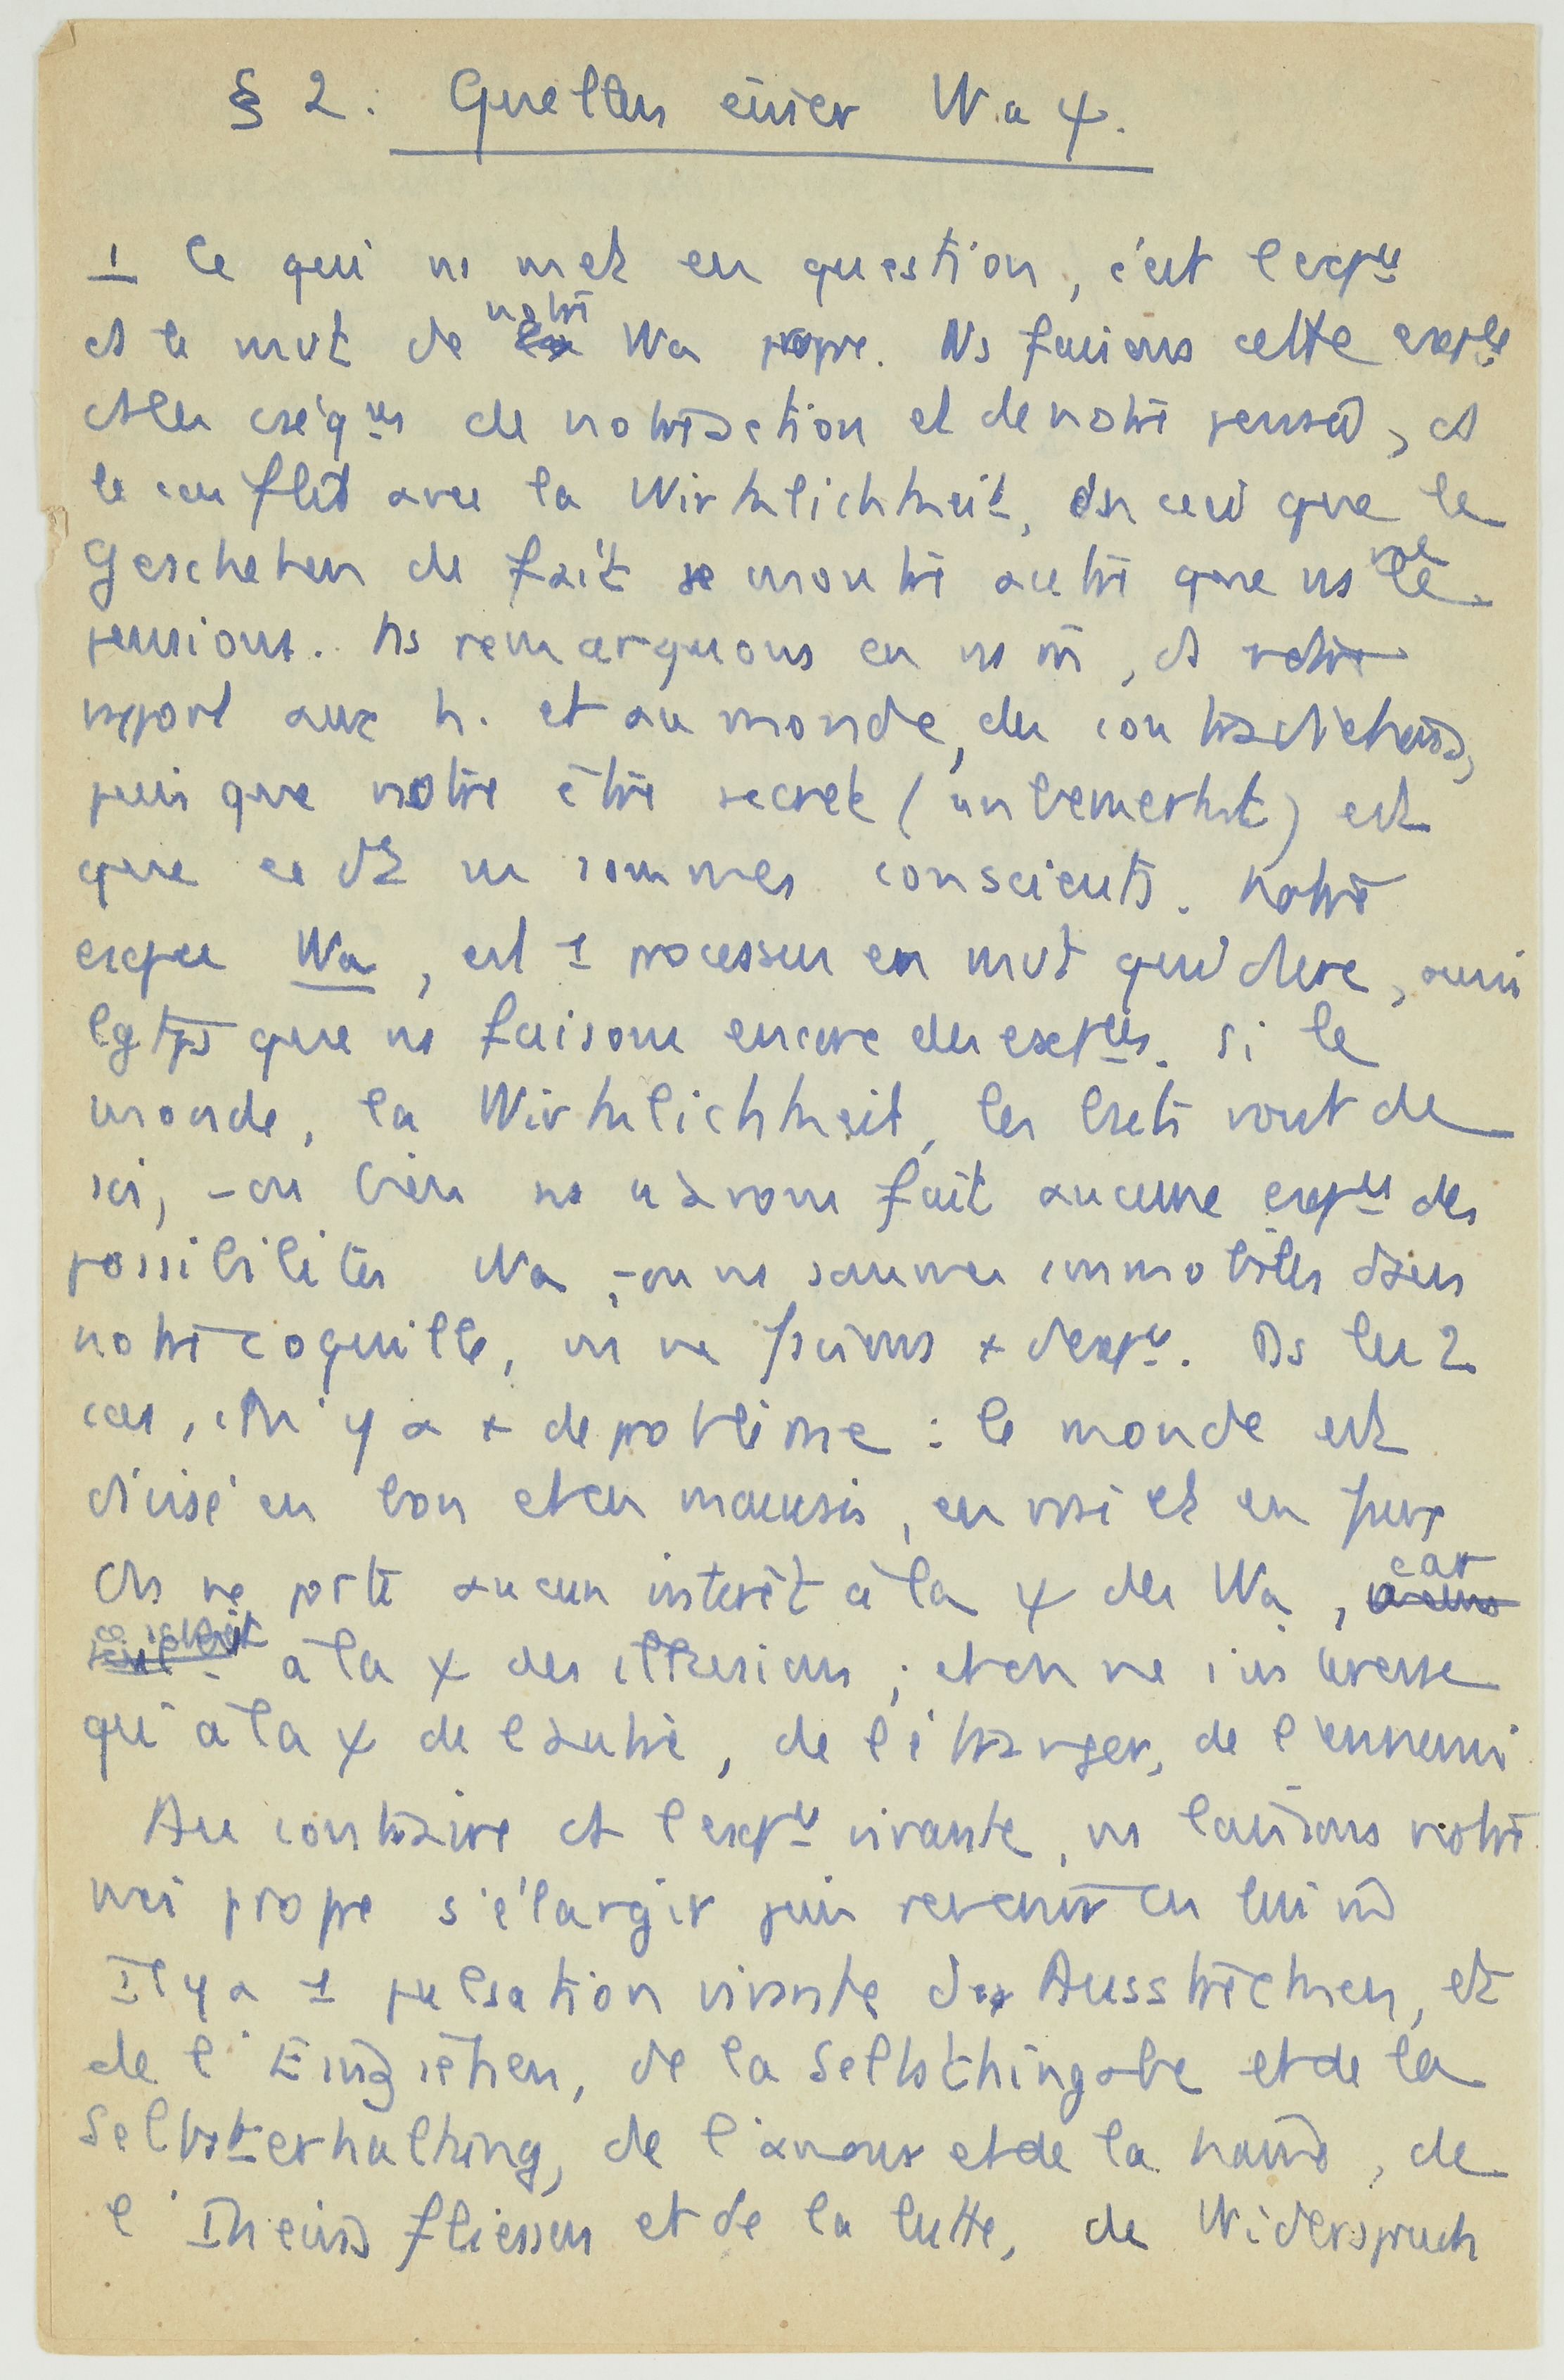 § 2. Quellen einer Wa ψ.
1 Ce qui ns met en question, c'est l'expce
et le mvt de notre Wa propre. Ns faisons cette expce
ds les conséqces de notre action et de notre pensée, ds
le conflit avec la Wirklichkeit, ds ceci que le
Geschehen de fait se montre autre que ns ne le
pensions. Ns remarquons en ns m̄, ds notre
rapport aux h. et au monde, des contradictions,
puisque notre être secret (unbemerkt) est
que ce dt ns sommes conscients. Notre
expce Wa, est 1 processus en mvt qui dure, aussi
lgtps que ns faisons encore des expces. Si le
monde, la Wirklichkeit, les êtres vont de
soi, – ou bien ns n'avons fait aucune expce des
possibilités Wa, – ou ns sommes immobiles dans
notre coquille, ns ne faisons + d'expce. Ds les 2
cas, il n'y a + de problème : le monde est
divisé en bon et en mauvais, en vrai et en faux
On ne porte aucun intérêt à la ψ des Wa, car
ce serait à la ψ des illusions ; et on ne s'intéresse
qu'à la ψ de l'autre, de l'étranger, de l'ennemi
Au contraire ds l'expce vivante, ns laissons notre
moi propre s'élargir puis revenir en lui m̄
Il y a 1 pulsation vivante des Ausstrecken, et
de l'Einziehen, de la Selbsthingabe et de la
Selbsterhaltung, de l'amour et de la haine, de
l'Ineinsfliessen et de la lutte, de Widerspruch